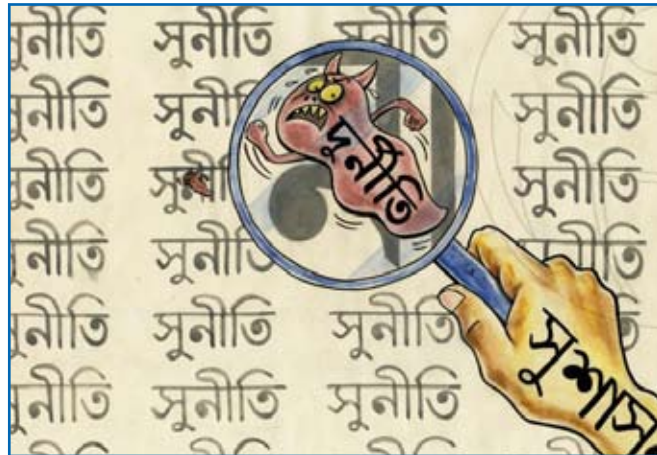 সুনীতি সুনীতি সুনীতি সুনীতি
সুনীতি সুনীতি সুনীতি
সুনীতি সুনী সুনীতি
দুর্নীতি
সুনীতি সুনীতি সুনীতি
সুনীতি সুনীতি সুনীতি
সুশাস
সুনীতি সুনীতি সুনীতি